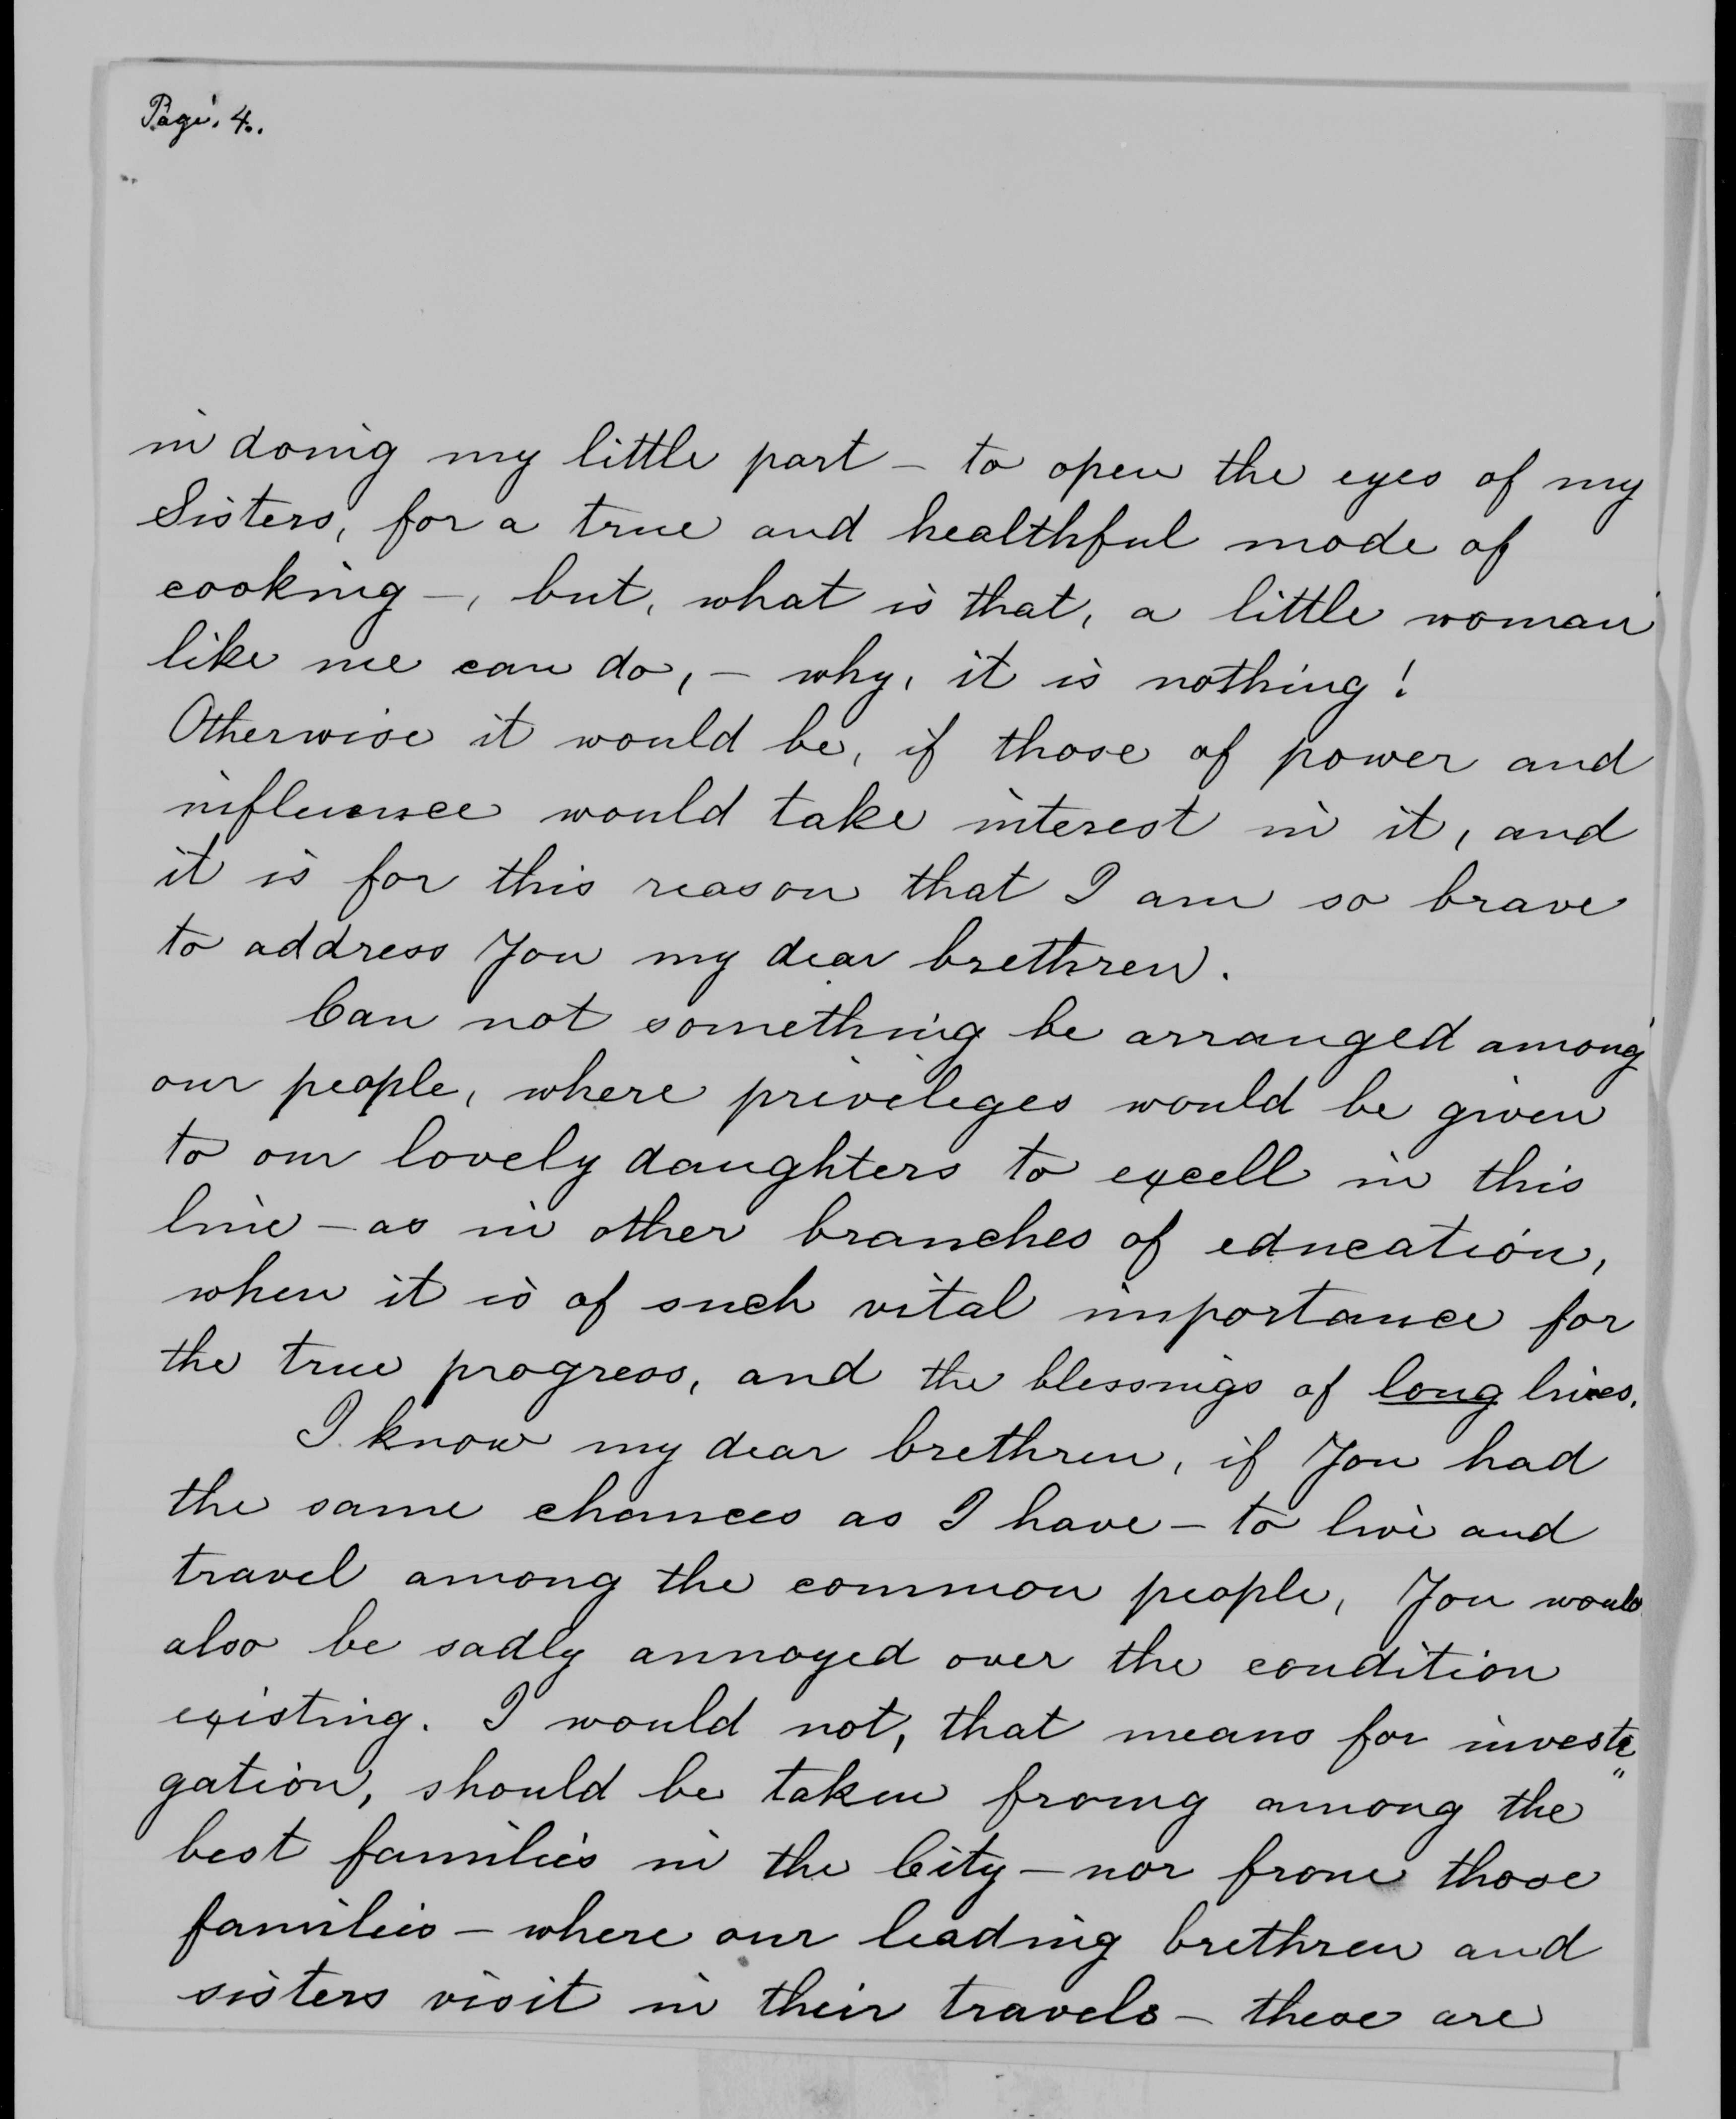 Page. 4.
in doing my little part – to open the eyes of my
Sisters, for a true and healthful mode of
cooking –, but, what is that, a little woman
like me can do, – why, it is nothing!
Otherwise it would be, if those of power and
influence would take interest in it, and
it is for this reason that I am so brave
to address You my dear brethren.
Can not something be arranged among
our people, where privileges would be given
to our lovely daughters to excell in this
line – as in other branches of education,
when it is of such vital importance for
the true progress, and the blessings of long lives.
I know my dear brethren, if You had
the same chances as I have – to live and
travel among the common people, You would
also be sadly annoyed over the condition
existing. I would not, that means for investi"
gation, should be taken fromg among the
best families in the City – nor from those
families – where our leading brethren and
sisters visit in their travels – these are